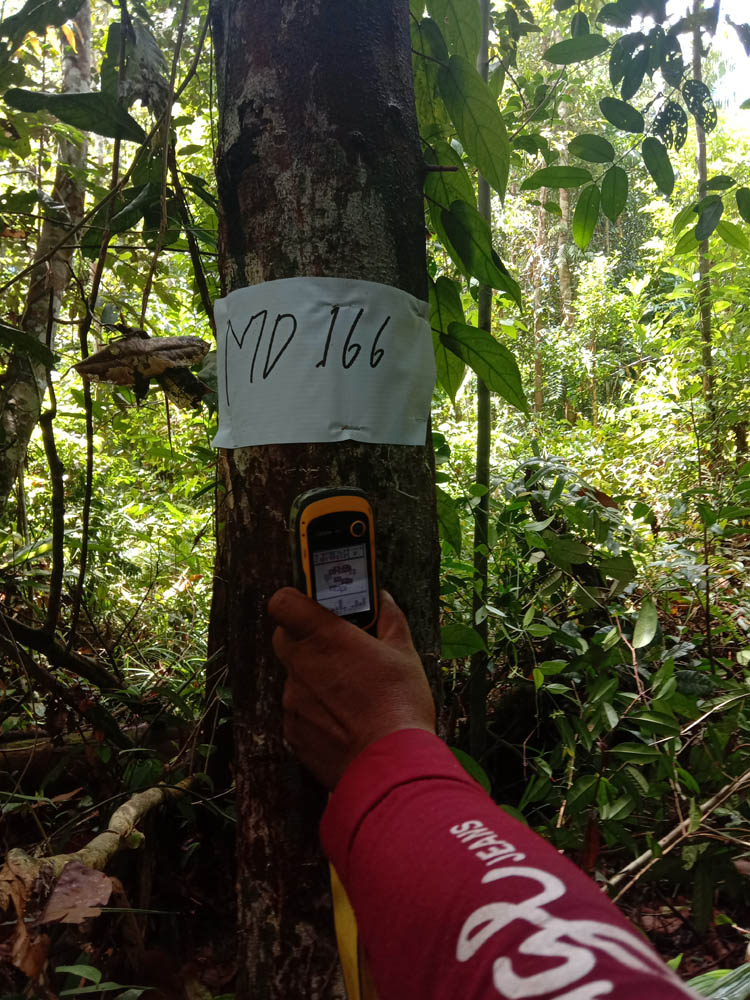 MD 166
JEANS